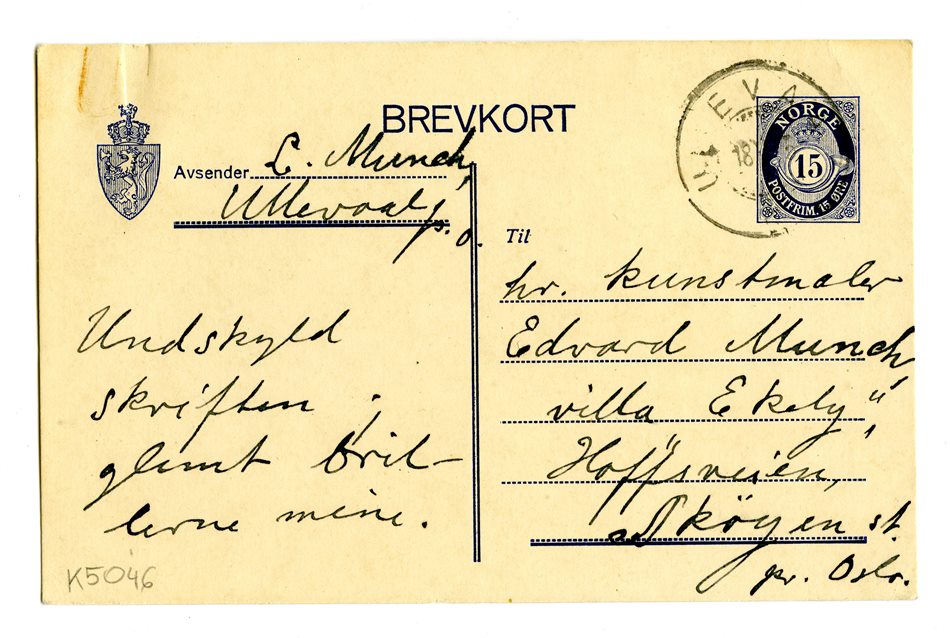 BREVKORT
Avsender L. Munch,
Ullevaal p. o.
Undskyld
skriften ;
glemt bril-
lerne mine.
K5046
NORGE
15
POSTFRIM. 15 ØRE
Til
hr. kunstmaler
Edvard Munch,
villa Ekely",
Hoffsveien,
Skøyen st.
pr. Oslo.